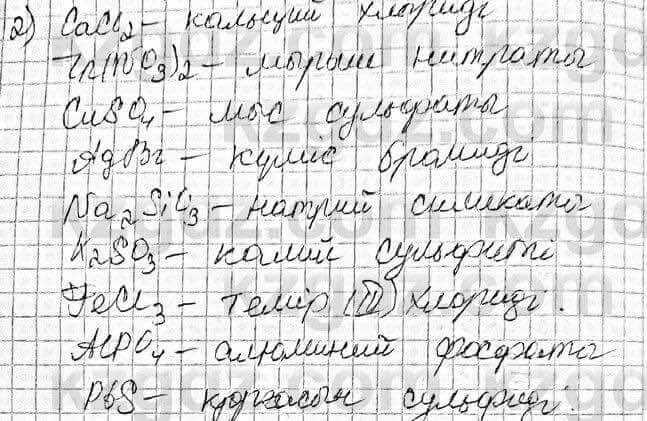 2) CaCl2 – кальций хлориді
Zn(NO3)2 – мырыш нитраты
CuSO4 – мыс сульфаты
AgBr – күміс бромиді
Na2SiO3 – натрий силикаты
K2SO3 – калий сульфиті
FeCl3 – темір (III) хлориді.
AlPO4 – алюминий фосфаты
PbS – қорғасын сульфиді.